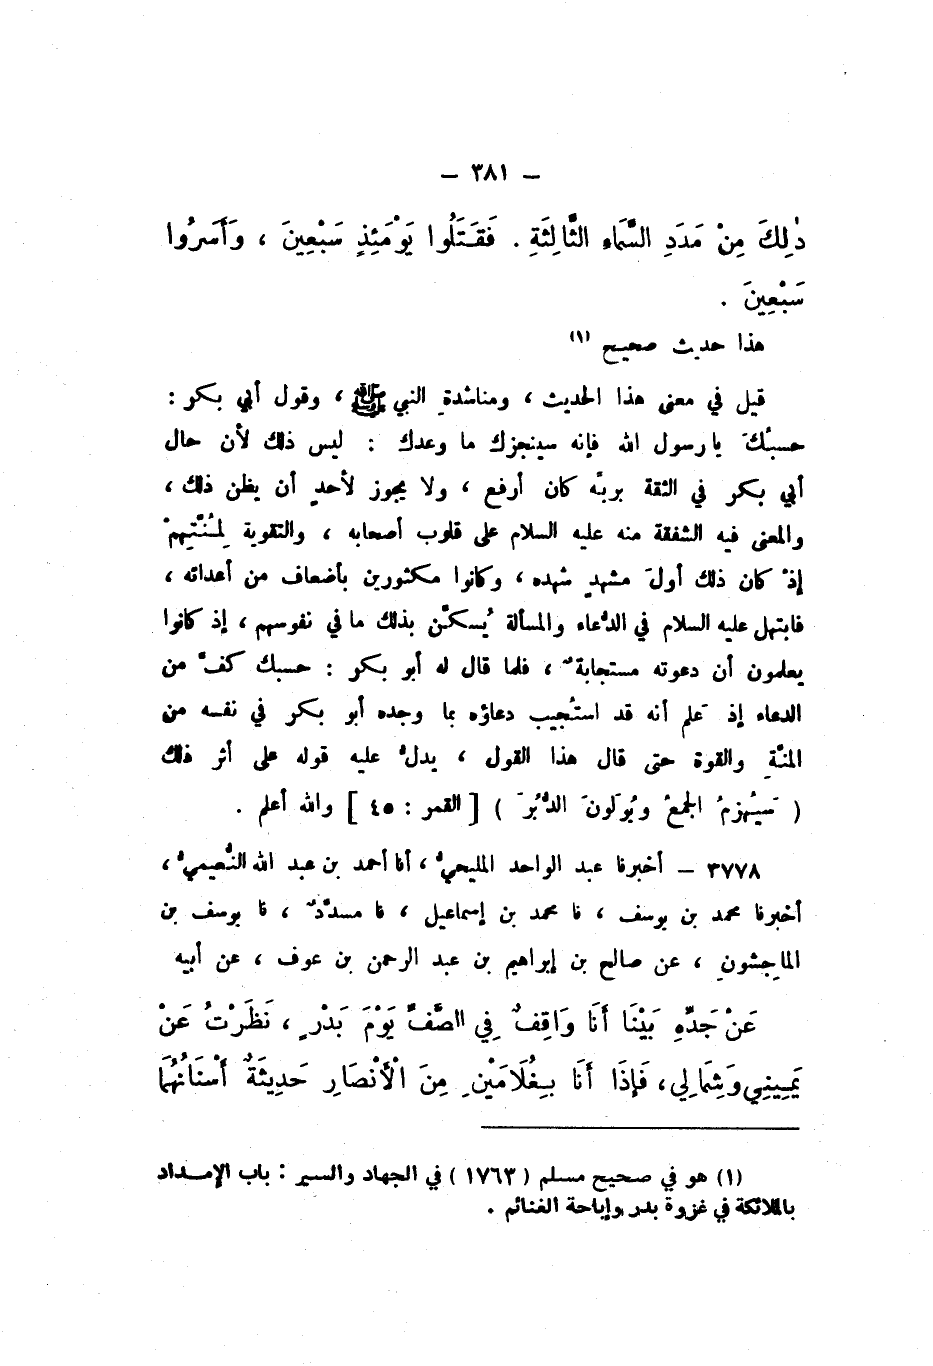 — ٣٨١ —
ذٰلِكَ مِنْ مَدَدِ السَّمَاءِ الثَّالِثَةِ . فَقَتَلُوا يَوْمَئِذٍ سَبْعِينَ ، وَأَسَرُوا
سَبْعِينَ .
هذا حديث صحيح (١)
قيل في معنى هذا الحديث ، ومناشدةِ النبي ﷺ ، وقول أبي بكر :
حسبُكَ يا رسول الله فإنه سينجزك ما وعدك : ليس ذلك لأن حال
أبي بكر في الثقة بربّه كان أرفع ، ولا يجوز لأحدٍ أن يظن ذلك ،
والمعنى فيه الشفقة منه عليه السلام على قلوب أصحابه ، والتقوية لِمُنَّتِهِمْ
إذْ كان ذلك أولَ مشهدٍ شهده ، وكانوا مكثورين بأضعاف من أعدائه ،
فابتهل عليه السلام في الدُّعاء والمسألة ليُسكّن بذلك ما في نفوسهم ، إذ كانوا
يعلمون أن دعوته مستجابةٌ ، فلما قال له أبو بكر : حسبك كفَّ من
الدعاء إذ عَلم أنه قد استُجيب دعاؤه بما وجده أبو بكر في نفسه من
المنَّةِ والقوة حتى قال هذا القول ، يدلُّ عليه قوله على أثر ذلك
( سَيُهزمُ الجمعُ ويُوَلونَ الدُّبُرَ ) [ القمر : ٤٥ ] والله أعلم .
٣٧٧٨ — أخبرنا عبد الواحد المليحيُّ ، أنا أحمد بن عبد الله النُّعيميُّ ،
أخبرنا محمد بن يوسف ، نا محمد بن إسماعيل ، نا مسدَّدٌ ، نا يوسف بن
الماجِشونِ ، عن صالح بن إبراهيم بن عبد الرحمن بن عوف ، عن أبيه
عَنْ جَدِّهِ بَيْنَا أَنَا وَاقِفٌ فِي الصَّفِّ يَوْمَ بَدْرٍ ، نَظَرْتُ عَنْ
يَمِينِي وَشِمَالِي ، فَإِذَا أَنَا بِغُلَامَيْنِ مِنَ الْأَنْصَارِ حَدِيثَةٌ أَسْنَانُهُمَا
(١) هو في صحيح مسلم ( ١٧٦٣ ) في الجهاد والسير : باب الإمـداد
بالملائكة في غزوة بدر وإباحة الغنائم .